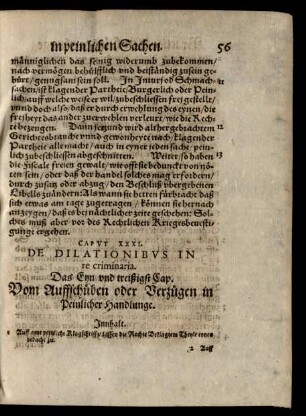 In peinlichen Sachen. 56
männiglichen das seinig widerumb zubekommen/
nach vermögen behülfflich und beständig zusein ge-
bürt/ gnugsam sein soll. In Injuri oder Schmach- 11
sachen/ ist klagender Partheie/ Bürgerlich oder Pein-
lich/ auff welche weise er wil/ zubeschliessen frei gestellt/
unnd doch also/ daß er durch erwehlung des eynen/ die
freiheyt das ander zuerwehlen verleurt/ wie die Rech-
te bezeugen. Dann jezunn wird alt hergebrachtem 12
Gerichtsbrauche unnd gewonheyt nach/ klagender
Partheie alle macht/ auch in eyner jeden sache/ pein-
lich zubeschliessen abgeschnitten. Weiter/ so haben 13
die Fiscale freien gewalt/ wie offt sie bedunckt von nö-
ten sein/ oder daß der handel solches mag erfordern/
durch zusatz oder abzug/ den Beschluß ubergebenen
Libells zuändern: Als wann sie hetten fürbracht/ daß
sich etwas am tage zugetragen/ können sie hernach
anzeygen/ daß es bei nächtlicher zeite geschehen: Sol-
ches muß aber vor des Rechtlichen Kriegsbevesti-
gunge ergehen.
CAPVT XXXI.
DE DILATIONIBVS IN
re criminaria.
Das Eyn und treißigst Cap.
Vom Auffschüben oder Verzügen in
Peinlicher Handlunge.
Innhalt.
1 Auff eyne peinliche Klagschrifft/ lassen die Rechte Beklagtem Theyle eynen
bedacht zu.
2 Auff